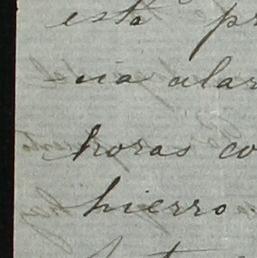 esta pr
cia alar
horas co
hierro